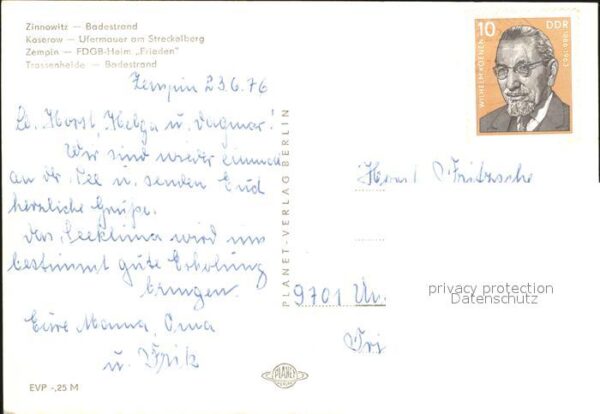 Zinnowitz — Badestrand
Koserow — Ufermauer am Streckelberg
Zempin — FDGB-Heim „Frieden“
Trassenheide — Badestrand
Zempin 23.6.76
Lb. Horst, Helga u. Dagmar!
Wir sind wieder einmal
an der See u. senden Euch
herzliche Grüße.
Das Seeklima wird uns
bestimmt gute Erholung
bringen.
Eure Mama, Oma
u. Fritz
EVP -,25 M
PLANET-VERLAG BERLIN
PLANET
VERLAG
10 DDR
WILHELM KOENEN
1886-1963
Horst Fritzsche
9701
privacy protection
Datenschutz